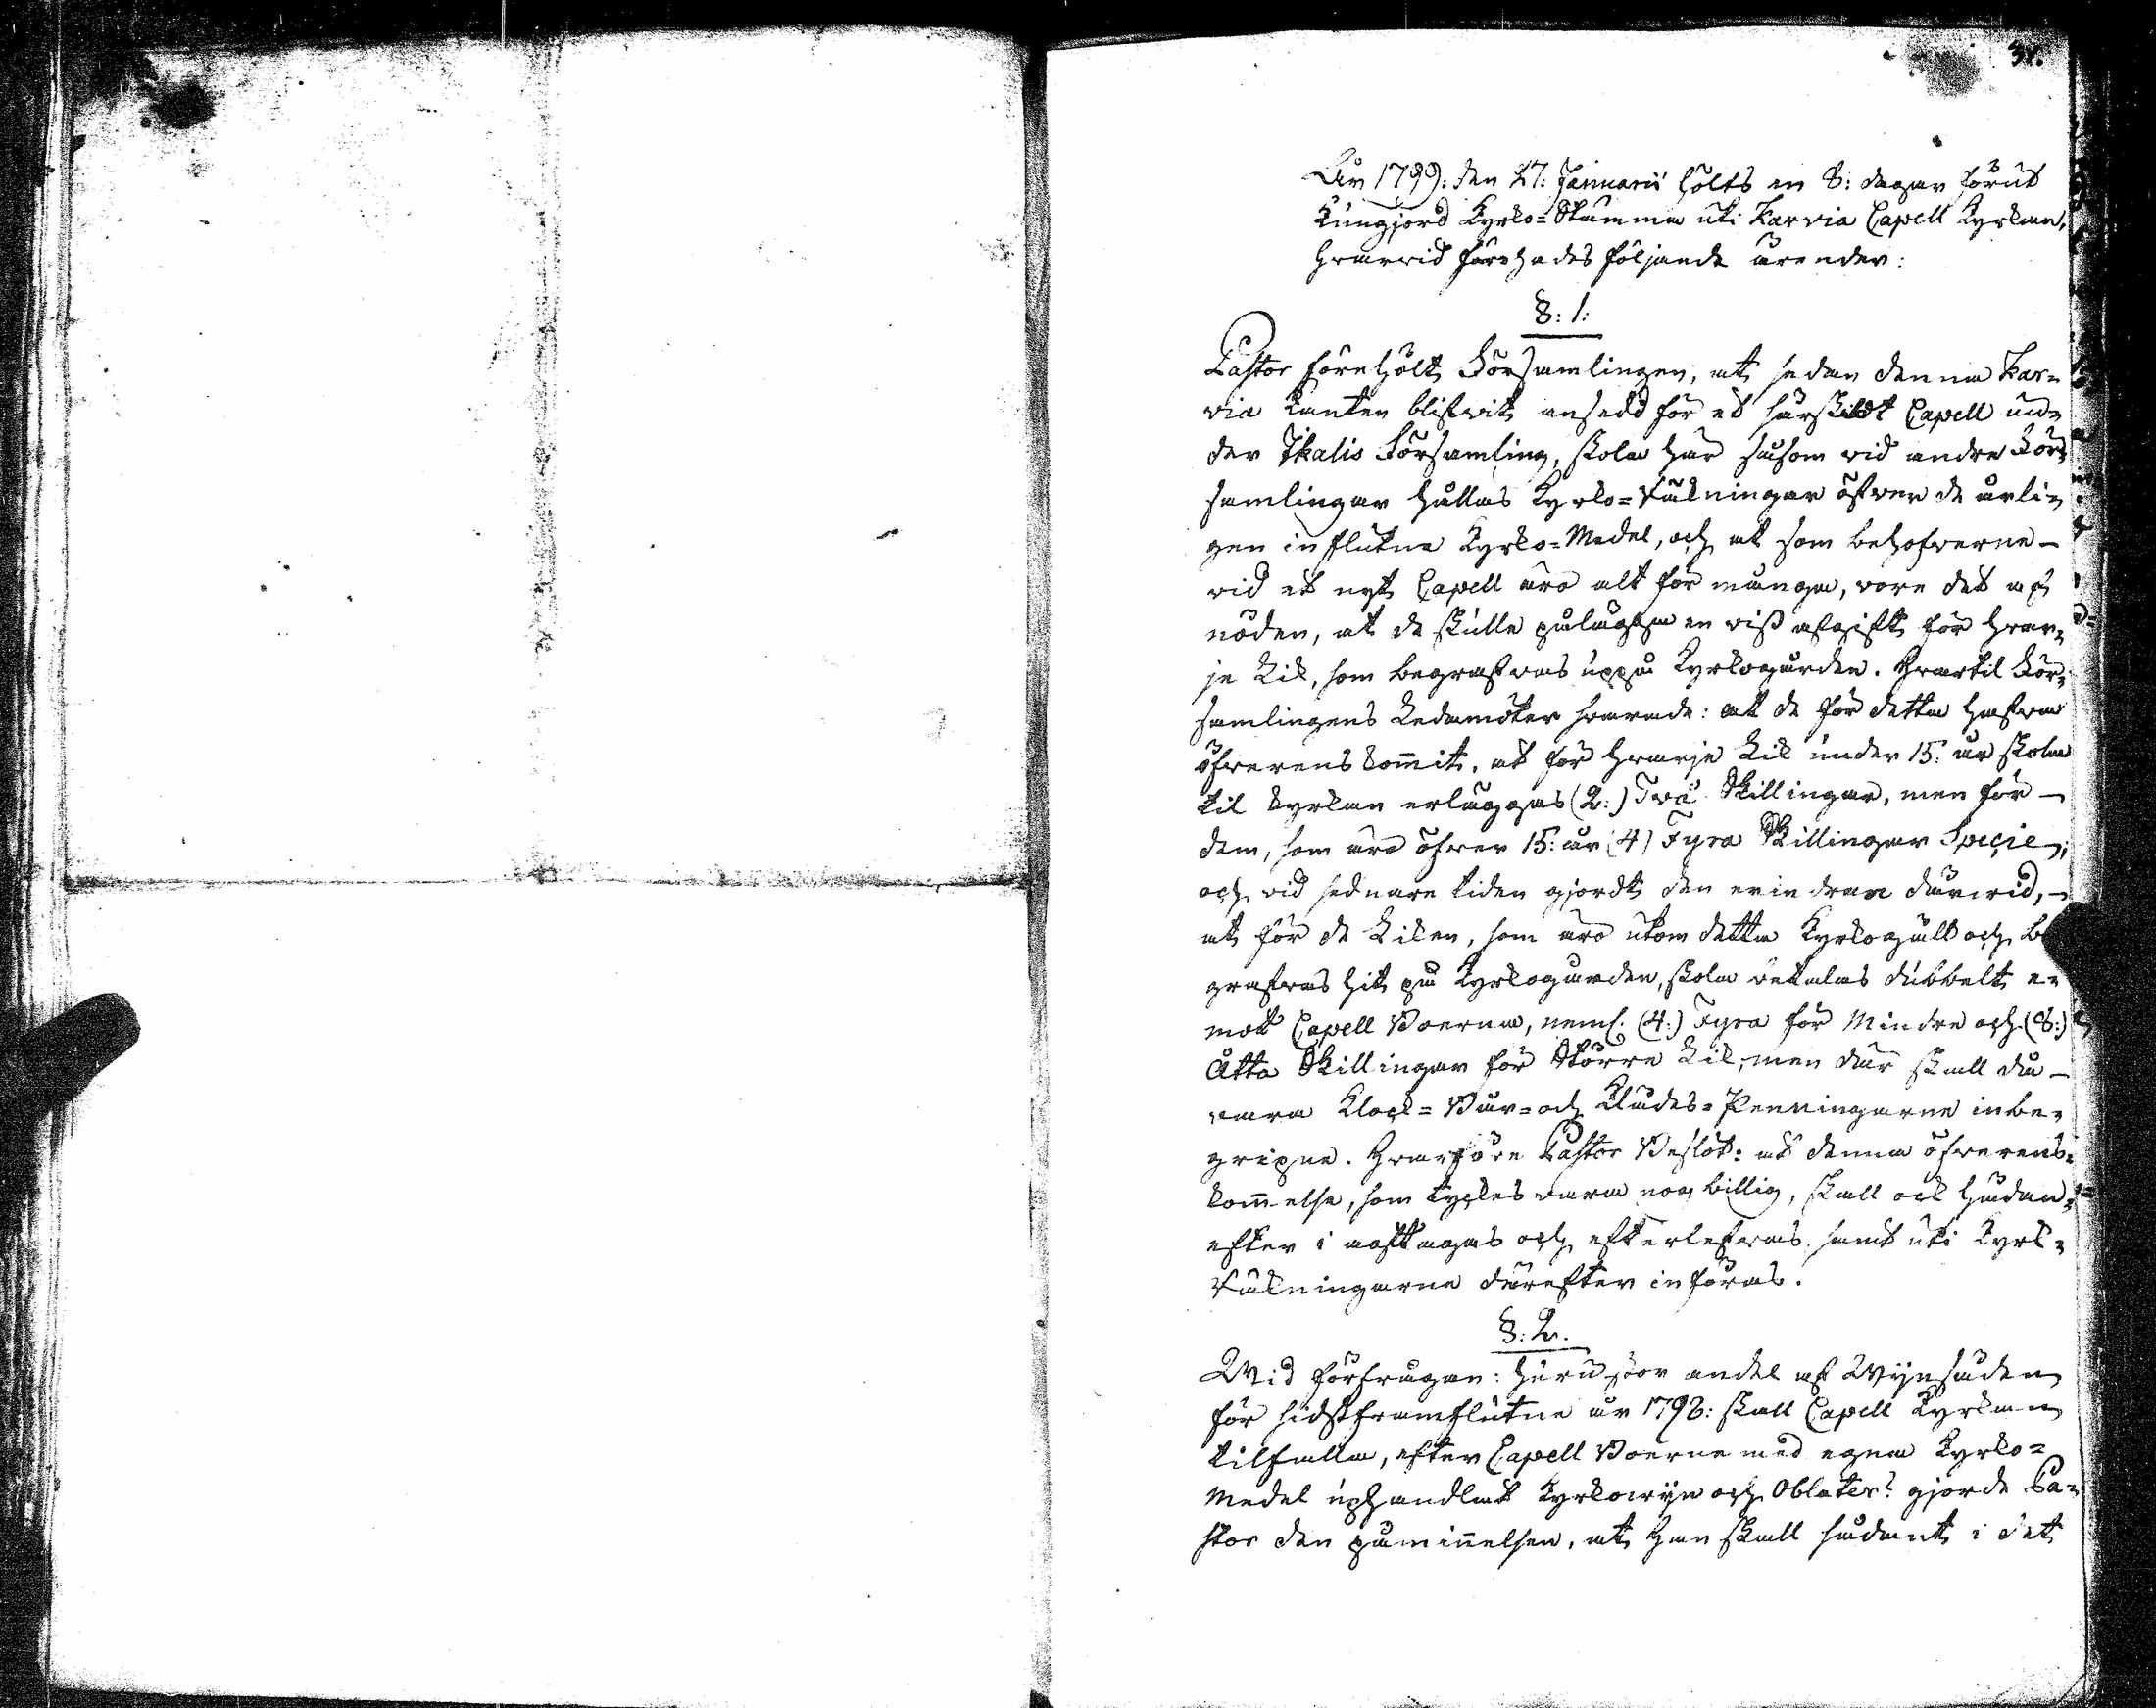 31.
År 1799: den 27: Januarii hölts en 8: dagar förut
kungjord Kyrko=Stämma uti Karvia Capell Kyrkan,
hvarvid förehades följande ärender:
§: 1:
Pastor föreholt Församlingen, at sedan denna Kar=
via kanten blifvit ansedd för et särskildt Capell un=
der Ikalis Församling, skola här såsom vid andre För=
samlingar hållas Kyrko=Räkningar öfver de årli=
gen influtne Kyrko=Medel, och at som behofverne
vid et nyt Capell äro alt för många, vore det af
nöden, at de skulle pålägga en viss afgift för hvar=
je Lik, som begrafvas uppå Kyrkogården. Hvartil För=
samlingens Ledamöter svarade: att de för detta hafva
öfverenskommit, at för hvarje Lik under 15: år skola
til kyrkan erläggas (2:) Två Skillingar, men för
dem, som äro öfver 15: år (4) Fyra Skillingar Specie,
och vid sednare tiden gjordt den erindran därvid,
at för de Liken, som äro utom detta Kyrkogäll och be
grafvas hit på Kyrkogården, skola betalas dubbelt e=
mot Capell Boerna, neml. (4:) Fyra för Mindre och (8:)
Åtta Skillingar för Större Lik, men där skall då
vara Klock= Bår= och Kludes=Penningarne inbe=
gripne. Hvarföre Pastor Beslöt: at denna öfverens=
kommelse, som tyckes vara nog billig, skall ock hädan=
efter i akttagas och efterlefvas, samt uti Kyrk=
Räkningarne därefter införas.
§: 2.
Wid förfrågan: huru stor andel af Wijnsäden
för sidstframflutne år 1798: skall Capell Kyrkan
tilfalla, efter Capell Boerne med egna Kyrko=
Medel uphandlat Kyrkowijn och Oblater? gjorde Pa=
stor den påminnelsen, at han skall sådant i det